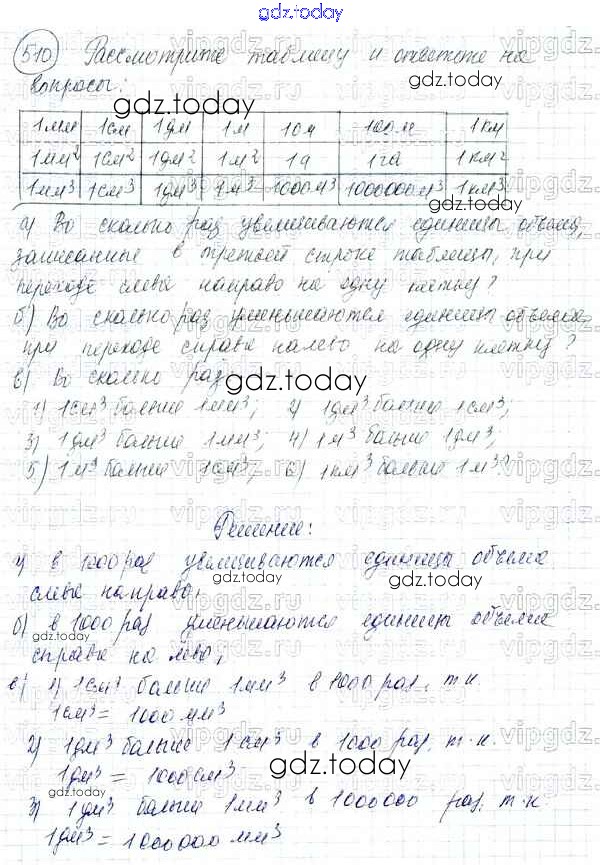 gdz.today
510 Рассмотрите таблицу и ответьте на
вопросы:
gdz.today
gdz.today
1мм 1см 1дм 1м 10м 100м 1км
1мм² 1см² 1дм² 1м² 1а 1га 1км²
1мм³ 1см³ 1дм³ 1м³ 1000м³ 1000000м³ 1км³
а) Во сколько раз увеличиваются единицы объема,
записанные в третьей строке таблицы, при
переходе слева направо на одну клетку?
б) Во сколько раз уменьшаются единицы объема
при переходе справа налево на одну клетку?
в) Во сколько раз:
gdz.today
1) 1см³ больше 1мм³; 2) 1дм³ больше 1см³;
3) 1дм³ больше 1мм³; 4) 1м³ больше 1дм³;
5) 1м³ больше 1см³; 6) 1км³ больше 1м³?
Решение:
а) в 1000 раз увеличиваются единицы объема
слева направо;
gdz.today
gdz.today
б) в 1000 раз уменьшаются единицы объема
справа на лево;
gdz.today
gdz.today
в) 1) 1см³ больше 1мм³ в 1000 раз, т.к.
1см³ = 1000 мм³
2) 1дм³ больше 1 см³ в 1000 раз, т.к.
1дм³ = 1000см³
gdz.today
3) 1 дм³ больше 1мм³ в 1000000 раз, т.к
1дм³ = 1000000 мм³
vipgdz.ru